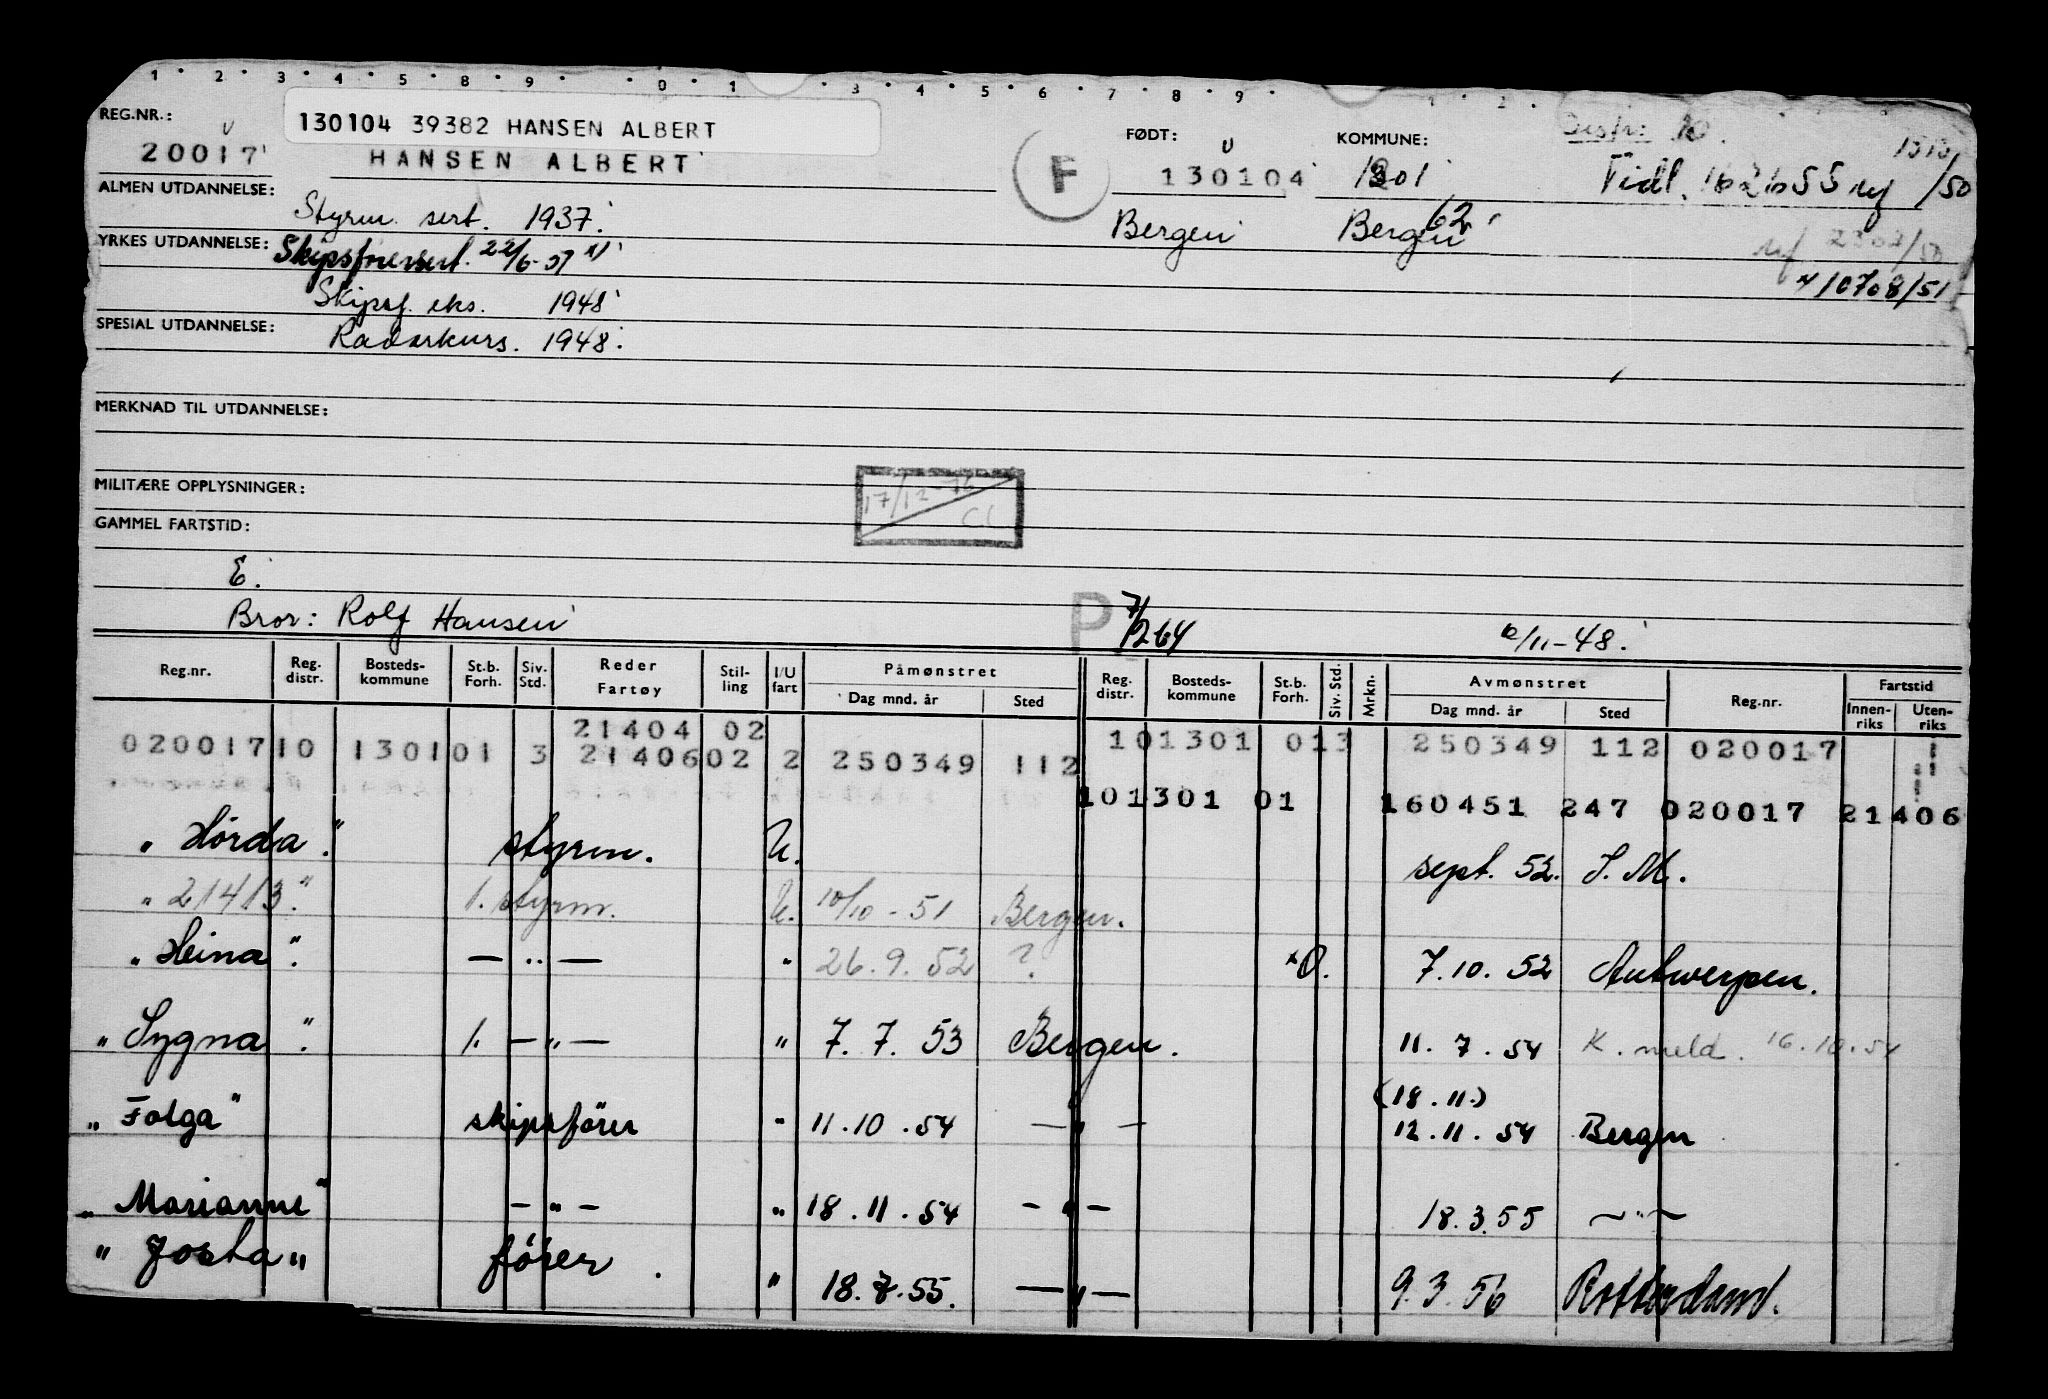 1 2 3 4 5 8 9 0 1 3 4 5 6 7 8 9 1 2
REG.NR.: 130104 39382 HANSEN ALBERT FØDT: KOMMUNE: Distr: 10.
20017 HANSEN ALBERT F 130104 1301 Tidl. /50
ALMEN UTDANNELSE: Styrm. sert. 1937. Bergen Bergen 62
YRKES UTDANNELSE: Skipsførersert. 22/6-37
Skipsf. eks. 1948 10708/51
SPESIAL UTDANNELSE: Radarkurs. 1948.
MERKNAD TIL UTDANNELSE:
MILITÆRE OPPLYSNINGER: 17/12-76 CL
GAMMEL FARTSTID:
E.
Bror: Rolf Hansen P 7/264 12/11-48.
Reg.nr. Reg. distr. Bosteds- kommune St.b. Forh. Siv. Std. Reder Fartøy Stil- ling I/U fart Påmønstret Dag mnd. år Sted Reg. distr. Bosteds- kommune St.b. Forh. Siv. Std. Mrkn. Avmønstret Dag mnd. år Sted Reg.nr. Fartstid Innen- riks Uten- riks
21404 02
020017 10 1301 01 3 21406 02 2 250349 112 10 1301 01 3 250349 112 020017
10 1301 01 160451 247 020017 21406
"Hörda". styrm. U. sept. 52. S.M.
"21413". 1. styrm. U. 10/10-51 Bergen.
"Heina". — " — " 26.9.52 ? *O. 7.10.52 Antwerpen.
"Sygna". 1. — " — " 7.7.53 Bergen. 11.7.54 K. meld. 16.10.54
(18.11.)
"Folga" skipsförer " 11.10.54 — " — 12.11.54 Bergen
"Marianne" — " — " 18.11.54 — " — 18.3.55 — " —
"Josta" förer. " 18.7.55. — " — 9.3.56 Rotterdam.